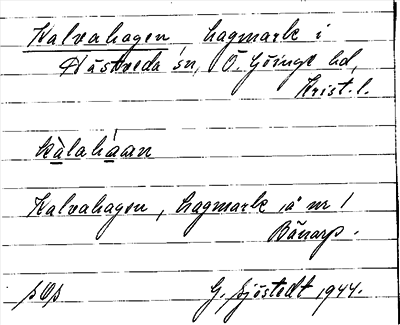 Kalvahagen, hagmark i
Hästveda sn, Ö. Göinge hd,
Krist. l.
kàlaháan
Kalvahagen, hagmark å nr 1
Bånarp.
G. Sjöstedt 1944.